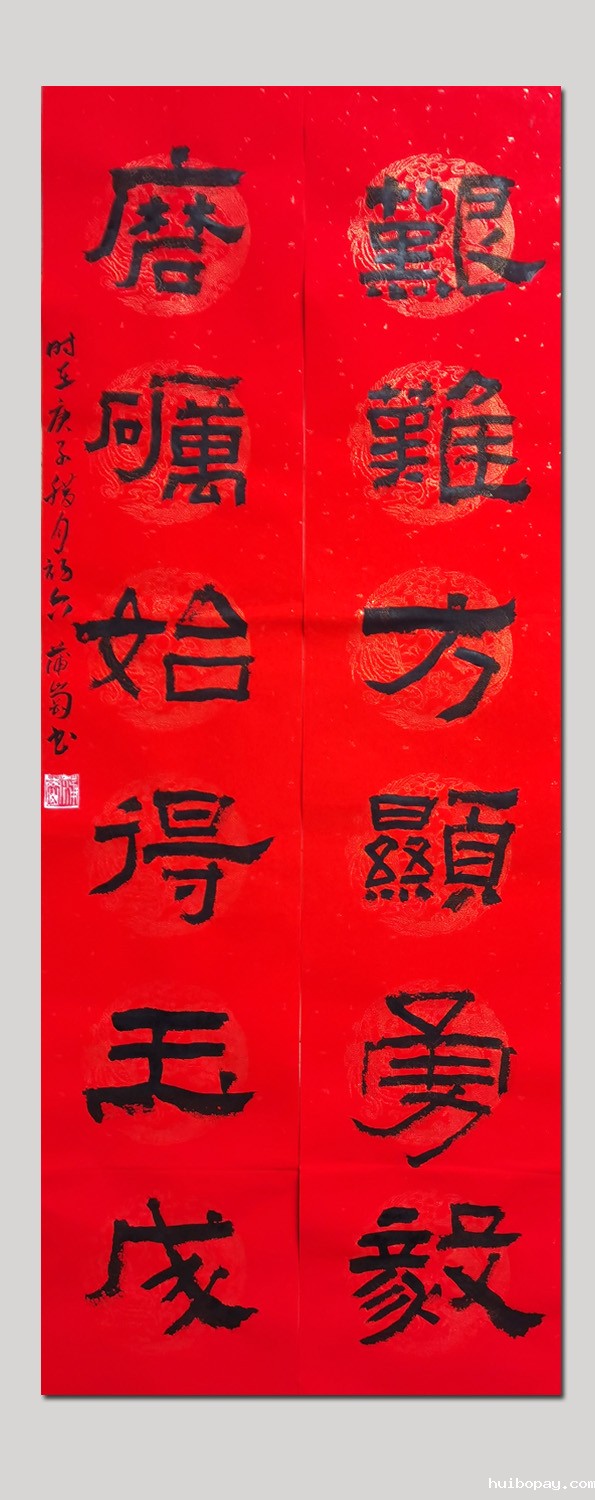 艱難方顯勇毅
磨礪始得玉成
时在庚子腊月初六 蒲崗书
huibopay.com